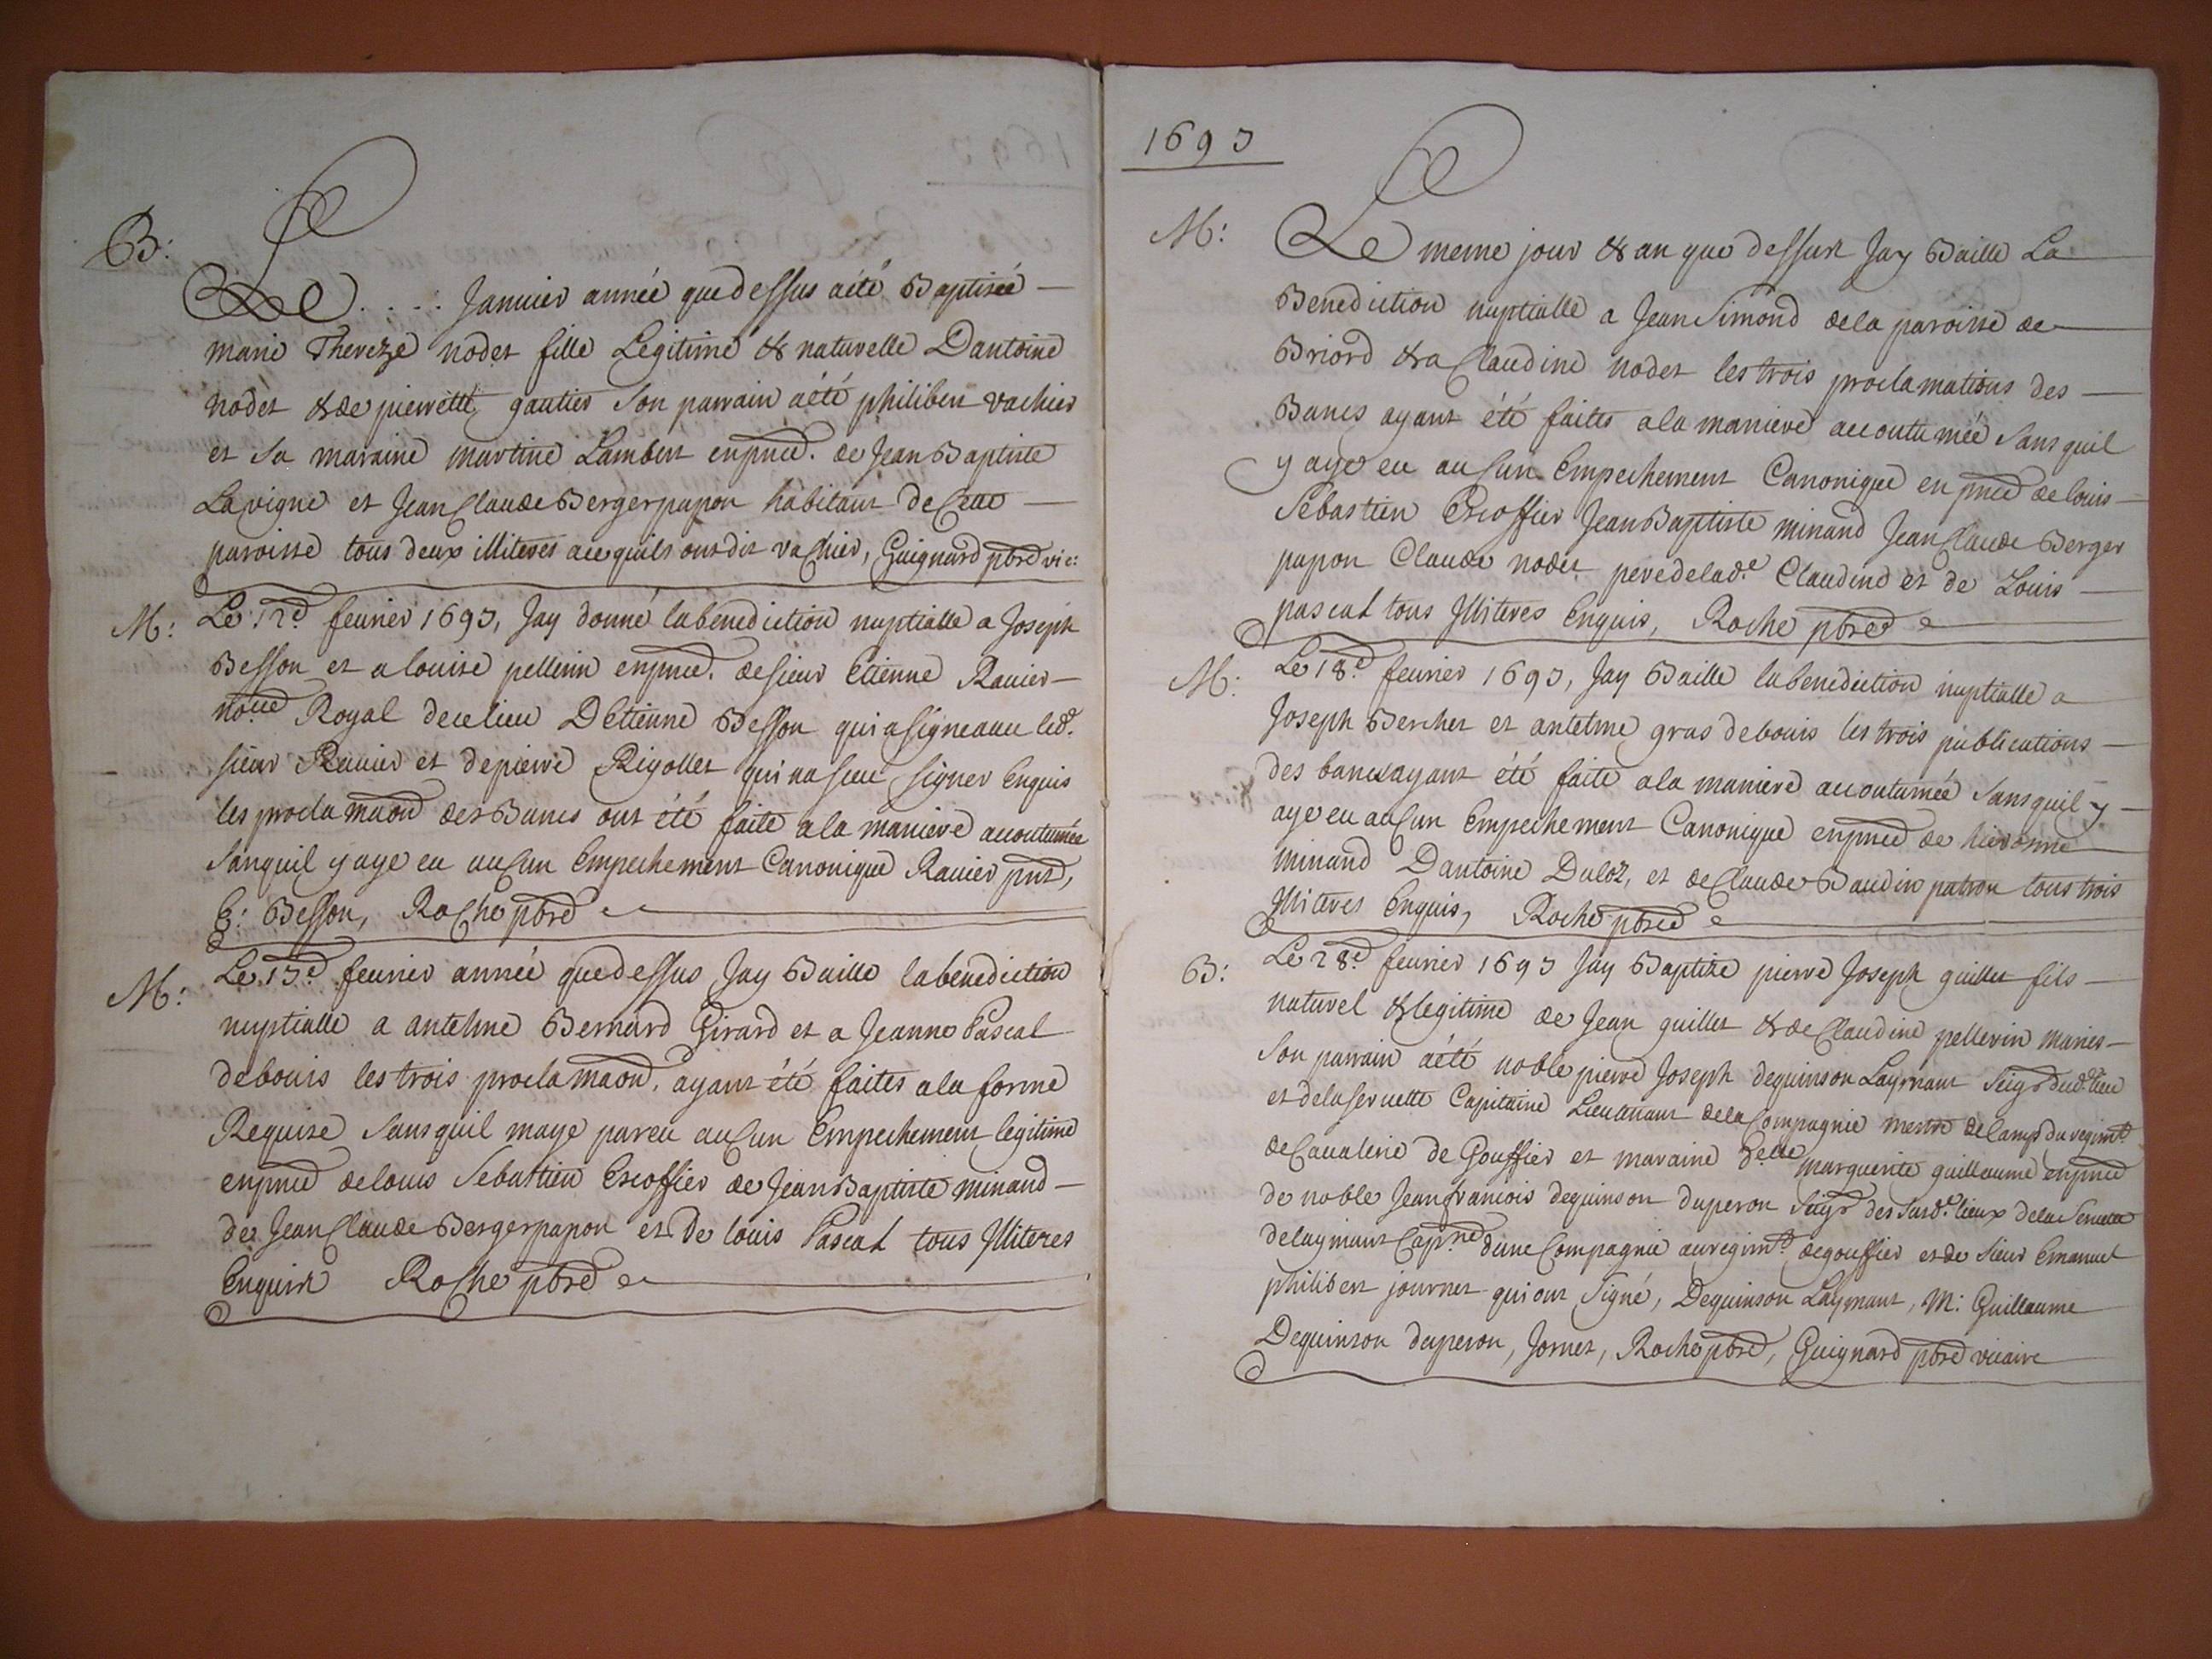 B:
Le . . . . Janvier année que dessus a été Baptisée —
marie Thereze nodet fille Legitime & naturelle Dantoine
nodet & de pierrette gautier Son parrain a été philibert vachier
et Sa maraine martine Lambert enpnce. de Jean Baptiste
Lavigne et Jean Claude Bergerpapon habitant de Cette —
paroisse tous deux illiteres ace quils ont dit vachier, Guignard pbre vic:
M: Le 12e fevrier 1693, Jay donné la benediction nuptialle a Joseph
Besson et a louise pellerin enpnce. de sieur Etienne Ravier —
nore Royal de ce lieu D'Etienne Besson qui a signe avec led.
sieur Ravier et de pierre Rigollet qui na sceu signer Enquis
les proclamaon des Bancs ont été faite a la maniere accoutumée
Sanquil y aye eu aucun Empechement Canonique Ravier pnt,
E: Besson, Roche pbre
M: Le 13e fevrier année que dessus Jay Baille la benediction
nuptialle a antelme Bernard Girard et a Jeanne Pascal
debouis les trois proclamaon. ayant été faites a la forme
Requise Sans quil maye pareu aucun Empechement legitime
enpnce de louis Sebastien Escoffier de Jean Baptiste minand —
de Jean Claude Bergerpapon et De louis Pascal tous Illiteres
Enquis Roche pbre
1693
M: Le meme jour & an que dessus Jay Baille La
Benediction nuptialle a Jean Simond de la paroisse de
Briord & a Claudine nodet les trois proclamations des —
Bancs ayant été faites a la maniere accoutumée Sans quil
y aye eu aucun Empechement Canonique en pnce de louis —
Sebastien Escoffier Jean Baptiste minand Jean Claude Berger
papon Claude nodet pere de lad.e Claudine et de Louis —
pascal tous Illiteres Enquis, Roche pbre
M: Le 18e fevrier 1693, Jay Baille la benediction nuptialle a
Joseph Berchet et antelme gras debouis les trois publications —
des bancs ayant été faite a la maniere accoutumée Sans quil y —
aye eu aucun Empechement Canonique enpnce de hierosme
minand Dantoine Duloz, et de Claude Baudin patron tous trois
Illiteres Enquis, Roche pbre
B: Le 28e fevrier 1693 Jay Baptize pierre Joseph guillet fils —
naturel & legitime de Jean guillet & de Claudine pellerin maries —
Son parrain a été noble pierre Joseph dequinson Laymant Seigr dud. lieu
et de la servette Capitaine Lieutenant de la Compagnie mestre de Camp du regimt.
de Cavalerie de Gouffier et maraine Delle marguerite guillaume enpnce
de noble Jean francois dequinson duperon Seigr des Susd. lieux de la Servette
de laymant Capne. dune Compagnie au regimt. de gouffier et de Sieur Emanuel
philibert journet qui ont Signé, Dequinson Laymant, M: Guillaume
Dequinson duperon, Jornet, Roche pbre, Guignard pbre vicaire